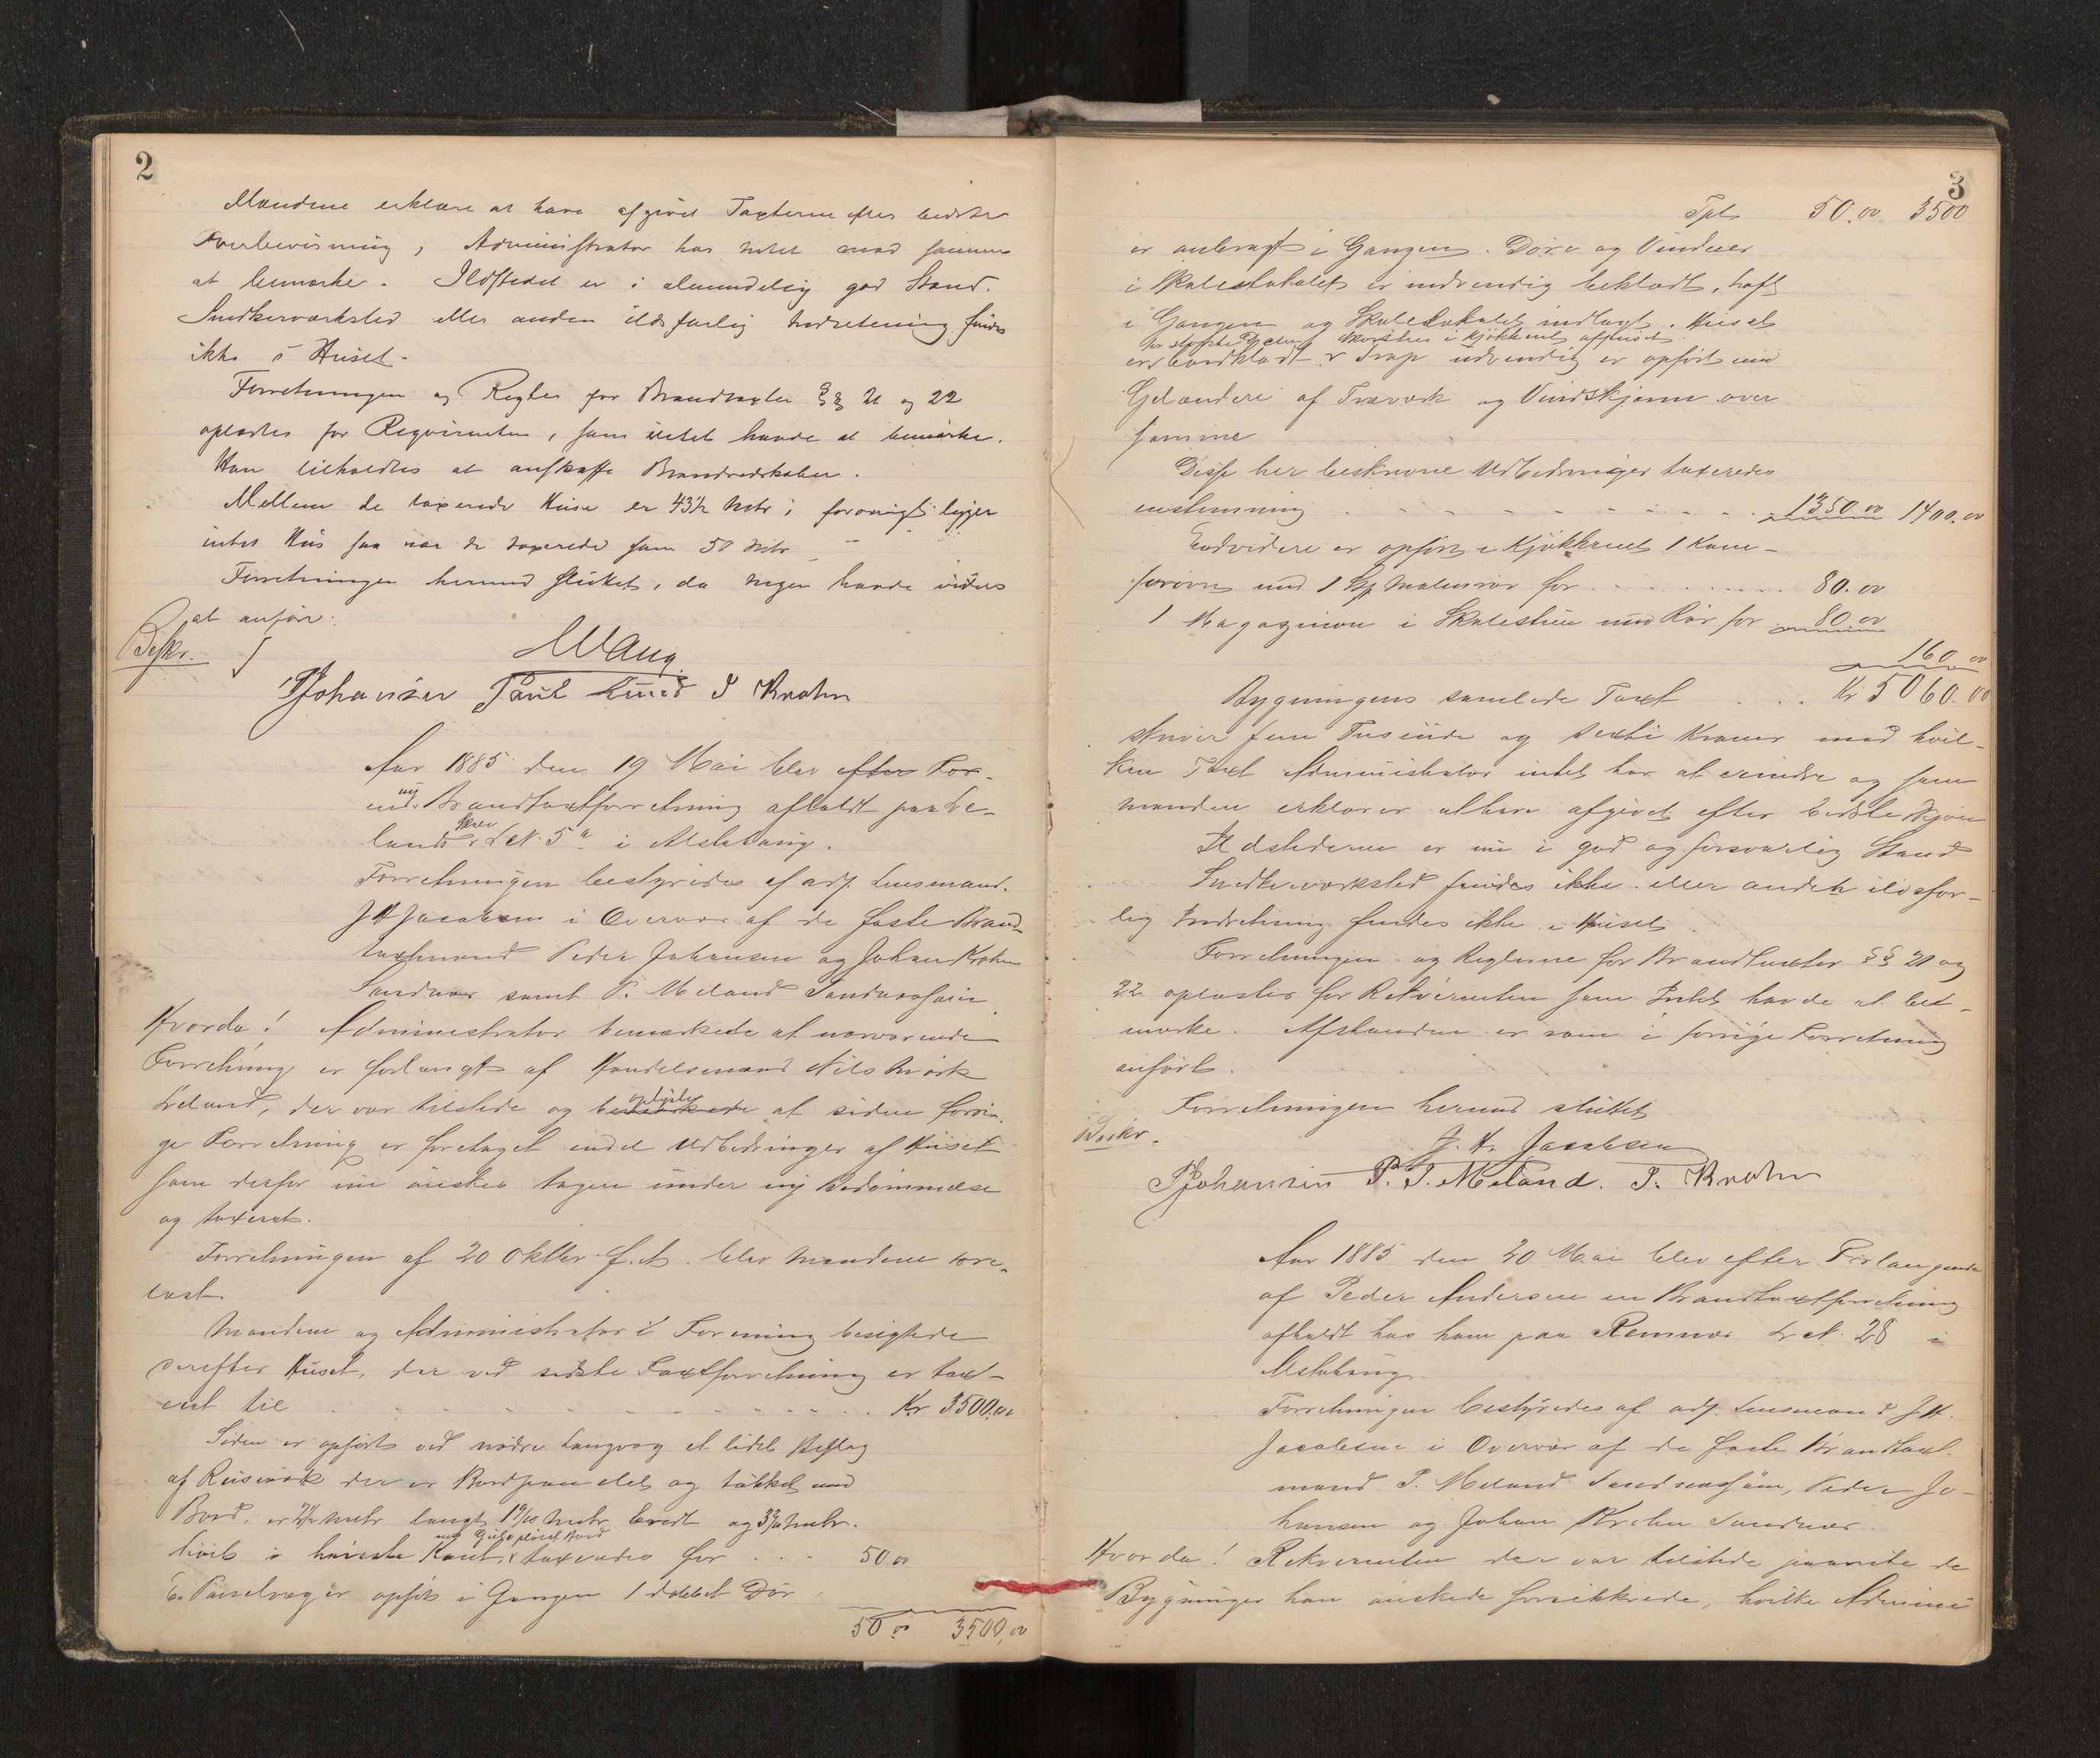 2
Mændene erklære at have afgivet Taxterne efter bedste
Overbevisning, Administrator har intet mod samme
at bemærke. Ildstedet er i almindelig god Stand.
Snedkerværksted eller anden ildsfarlig Indretning findes
ikke i Huset.
Forretningen og Regler for Brandtaxter §§ 21 og 22
oplæstes for Reqvirenten, som intet havde at bemærke.
Han tilholdtes at anskaffe Brandredskaber.
Mellem de taxerede Huse er 43½ Metr; forøvrigt ligger
intet Hus saa nær de taxerede som 50 Metr
Forretningen hermed sluttet, da ingen havde videre
at anføre.
Beskr.
PJohansen Paul Lund J Krohn
Aar 1885 den 19 Mai blev efter For-
ny Brandtaxtforretning afholdt paa Le-
land L No 5a i Alstahaug.
Forretningen bestyredes af adj. Lensmand
J H Jacobsen i Overvær af de faste Brand-
taxtmænd Peder Johansen og Johan Krohn
Sandnæs samt P. Meland Sandnæssjøen
Hvorda! Administrator bemærkede at nærværende
Forretning er forlangt af Handelsmand Nils Mørk
Leland, der var tilstede og bemærkede oplyste at siden forri-
ge Forretning er foretaget endel Udbedringer af Huset
som derfor nu ønskes tagen under ny Bedømmelse
og taxeret.
Forretningen af 20 Oktbr f. A. blev Mændene fore-
læst.
Mændene og Administrator i Forening besigtede
derefter Huset, der ved sidste Taxtforretning er tax-
eret til Kr 3500,00
Siden er opført ved nedre Langvæg et lidet Afslag
af Reisværk der er Bordpanelet og tækket med
Bord, er Metr langt Metr bredt og Metr.
høit i høieste Kant, taxeredes for 50.00
En Panelvæg er opført i Gangen 1 dobbelt Dør
50,00 3500,00
3
Tpt 50.00 3500
er anbragt i Gangen. Døre og Vinduer
i Skolelokalet er indvendig beklædt,
i Gangen og Skolelokalet indlagt. Huset
er bordklædt Trap udvendig er opført med
Gelændere af Træværk og Vindskjerm over
samme
Disse her beskrevne Udbedringer taxeredes
enstemmig 1350.00 1400.00
Endvidere er opført i Kjøkkenet 1 Kom-
forovn med 1 for 80.00
1 Magazinovn i Skolestuen med Rør for 80.00
160.00
Bygningens samlede Taxt Kr 5060.00
skriver fem Tusinde og sexti Kroner mod hvil-
ken Taxt Administrator intet har at erindre og som
mændene erklærer athave afgivet efter bedste Skjøn
Ildstederne er nu i god og forsvarlig Stand
Snedkerværksted findes ikke eller anden ildsfar-
lig Indretning findes ikke i Huset
Forretningen og Reglerne for Brandtaxter §§ 21 og
22 oplæstes for Rekvirenten som Intet havde at be-
mærke. Afstanden er som i forrige Forretning
anført.
Forretningen hermed sluttet
Beskr.
J. H. Jacobsen
PJohansen P. J. Meland. J. Krohn
Aar 1885 den 20 Mai blev efter Forlangende
af Peder Andersen en Brandtaxtforretning
afholdt hos ham paa Remnæs L No. 28 i
Alstahaug
Forretningen bestyredes af adj. Lensmand J H.
Jacobsen i Overvær af de faste Brandtaxt-
mænd P. Meland Sandnæssjøen, Peder Jo-
hansen og Johan Krohn Sandnæs
Hvorda! Rekvirenten der var tilstede paaviste de
Bygninger han ønskede forsikkrede, hvilke Admini